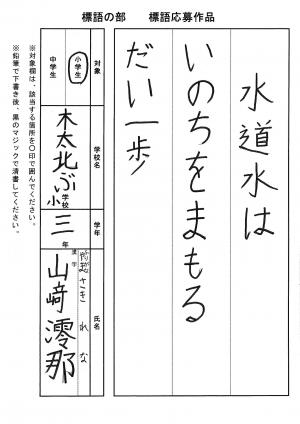 標語の部　標語応募作品
水道水は
いのちをまもる
だい一歩!
対象
小学生
中学生
学校名
木太北ぶ小学校
学年
三年
氏名
漢字
さき れな
山﨑 澪那
※対象欄は、該当する箇所を〇印で囲んでください。
※鉛筆で下書き後、黒のマジックで清書してください。